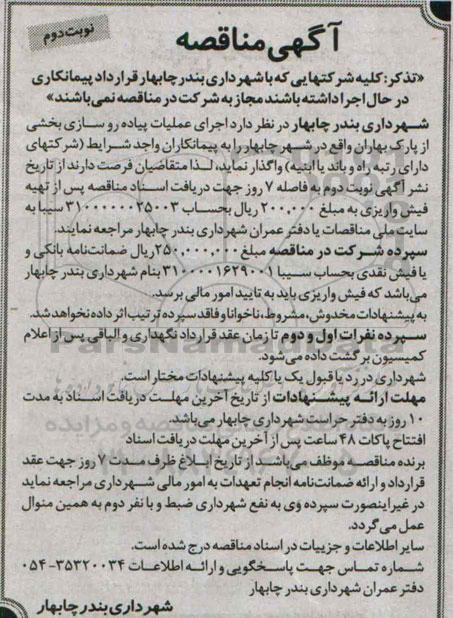 نوبت دوم
آگهی مناقصه
«تذکر: کلیه شرکتهایی که با شهرداری بندر چابهار قرارداد پیمانکاری
در حال اجرا داشته باشند مجاز به شرکت در مناقصه نمی باشند»
شهرداری بندر چابهار در نظر دارد اجرای عملیات پیاده رو سازی بخشی
از پارک بهاران واقع در شهر چابهار را به پیمانکاران واجد شرایط (شرکتهای
دارای رتبه راه و باند یا ابنیه) واگذار نماید، لذا متقاضیان فرصت دارند از تاریخ
نشر آگهی نوبت دوم به فاصله ۷ روز جهت دریافت اسناد مناقصه پس از تهیه
فیش واریزی به مبلغ ۲۰۰,۰۰۰ ریال بحساب ۳۱۰۰۰۰۰۰۳۵۰۰۳ سیبا به
سایت ملی مناقصات یا دفتر عمران شهرداری چابهار مراجعه نمایند.
سپرده شرکت در مناقصه مبلغ ۲۵۰,۰۰۰,۰۰۰ ریال ضمانت نامه بانکی و
یا فیش نقدی بحساب سیبا ۳۱۰۰۰۰۱۶۲۹۰۰۱ بنام شهرداری بندر چابهار
می باشد که فیش واریزی باید به تایید امور مالی برسد.
به پیشنهادات مخدوش، مشروط، ناخوانا و فاقد سپرده ترتیب اثر داده نخواهد شد.
سپرده نفرات اول و دوم تا زمان عقد قرارداد نگهداری و الباقی پس از اعلام
کمیسیون برگشت داده می شود.
شهرداری در رد یا قبول یک یا کلیه پیشنهادات مختار است.
مهلت ارائه پیشنهادات از تاریخ آخرین مهلت دریافت اسناد به مدت
۱۰ روز به دفتر حراست شهرداری چابهار می باشد.
افتتاح پاکات ۴۸ ساعت پس از آخرین مهلت دریافت اسناد
برنده مناقصه موظف می باشد از تاریخ ابلاغ ظرف مدت ۷ روز جهت عقد
قرارداد و ارائه ضمانت نامه انجام تعهدات به امور مالی شهرداری مراجعه نماید
در غیر اینصورت سپرده وی به نفع شهرداری ضبط و با نفر دوم به همین منوال
عمل می گردد.
سایر اطلاعات و جزییات در اسناد مناقصه درج شده است.
شماره تماس جهت پاسخگویی و ارائه اطلاعات ۳۵۳۲۰۰۳۴-۰۵۴
دفتر عمران شهرداری بندر چابهار
شهرداری بندر چابهار
ParsNamadData